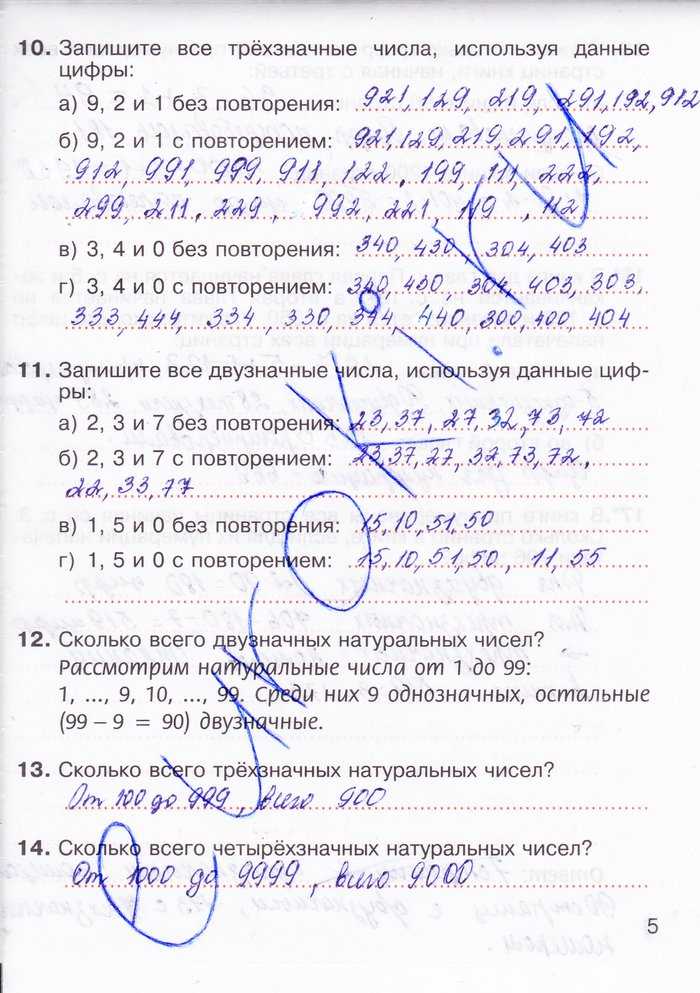 10. Запишите все трёхзначные числа, используя данные
цифры:
а) 9, 2 и 1 без повторения: 921, 129, 219, 291, 192, 912
б) 9, 2 и 1 с повторением: 921, 129, 219, 291, 192,
912, 991, 999, 911, 122, 199, 111, 222,
299, 211, 229, 992, 221, 119, 112
в) 3, 4 и 0 без повторения: 340, 430, 304, 403
г) 3, 4 и 0 с повторением: 340, 430, 304, 403, 303,
333, 444, 334, 330, 344, 440, 300, 400, 404
11. Запишите все двузначные числа, используя данные циф-
ры:
а) 2, 3 и 7 без повторения: 23, 37, 27, 32, 73, 72
б) 2, 3 и 7 с повторением: 23, 37, 27, 32, 73, 72,
22, 33, 77
в) 1, 5 и 0 без повторения: 15, 10, 51, 50
г) 1, 5 и 0 с повторением: 15, 10, 51, 50, 11, 55
12. Сколько всего двузначных натуральных чисел?
Рассмотрим натуральные числа от 1 до 99:
1, ..., 9, 10, ..., 99. Среди них 9 однозначных, остальные
(99 – 9 = 90) двузначные.
13. Сколько всего трёхзначных натуральных чисел?
От 100 до 999, всего 900
14. Сколько всего четырёхзначных натуральных чисел?
От 1000 до 9999, всего 9000
5